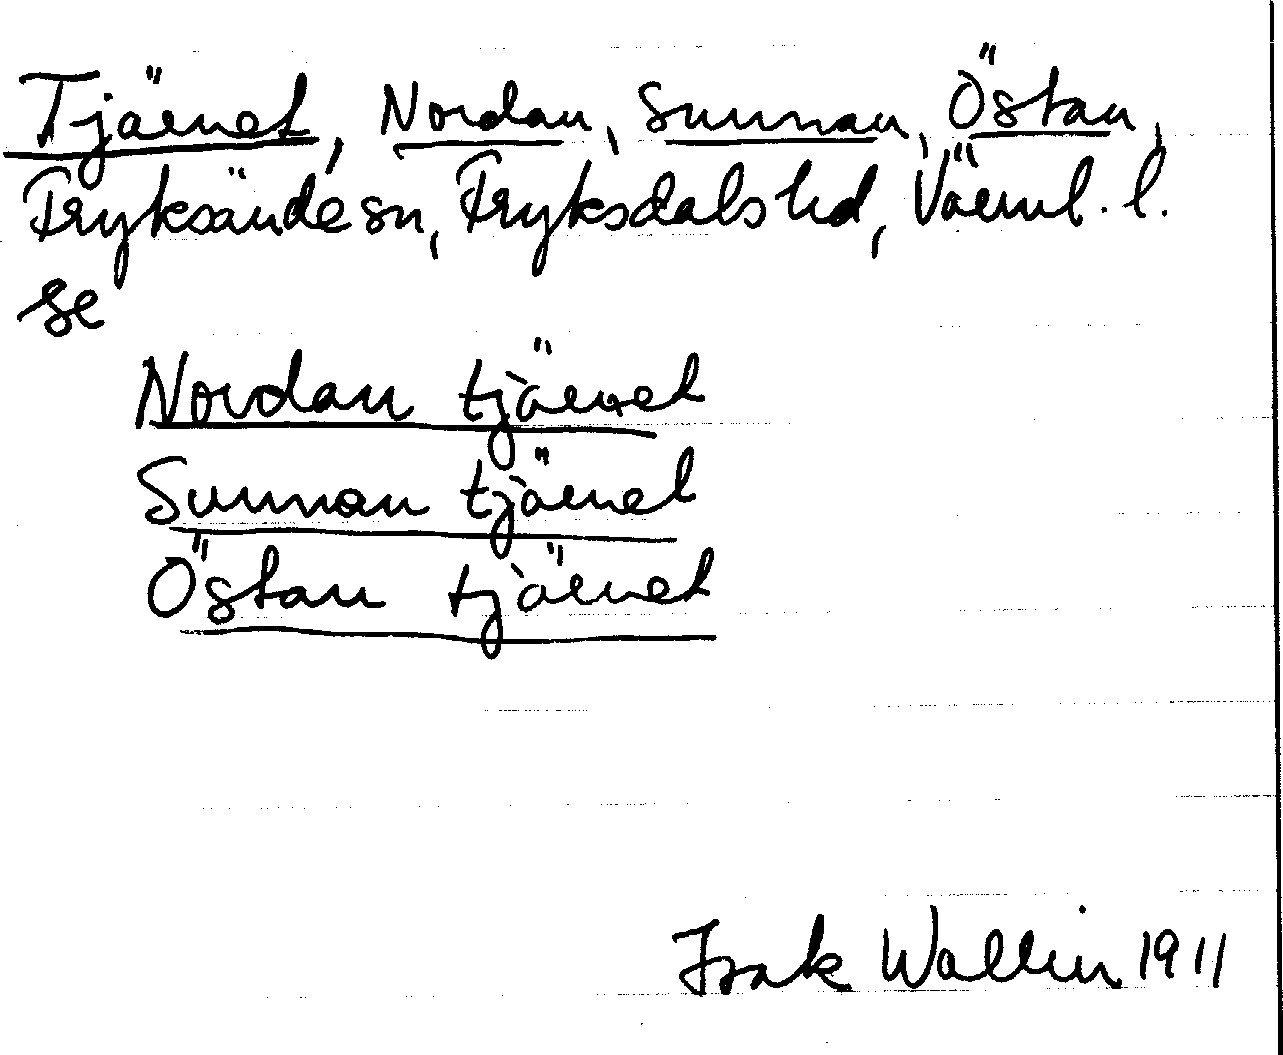 Tjärnet, Nordan, Sunnan, Östan,
Fryksände sn, Fryksdals hd, Värml. l.
se
Nordan tjärnet
Sunnan tjärnet
Östan tjärnet
Isak Wallin 1911